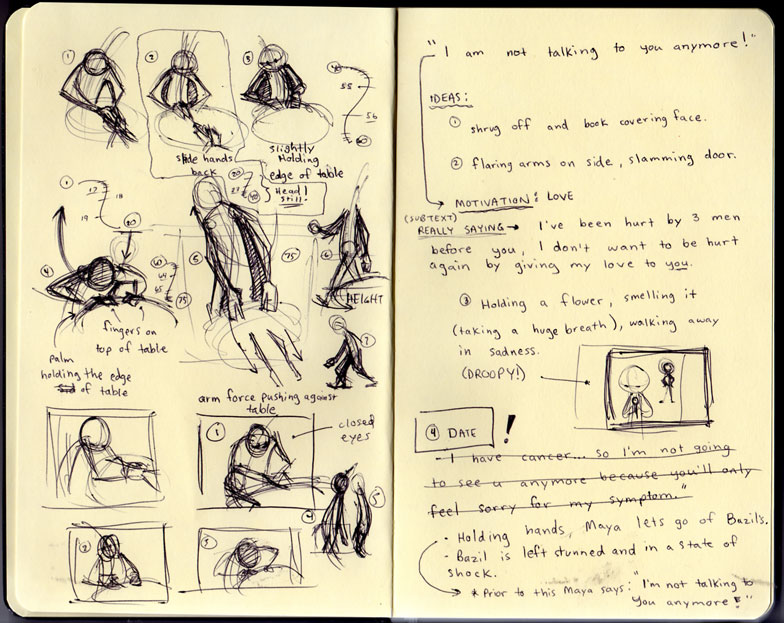 ①
②
③
40
55
56
60
slide hands
back
slightly
Holding
edge of table
Head!
still.
①
17
18
19
20
④
60
64
65
75
⑤
75
⑥
HEIGHT
⑦
fingers on
top of table
palm
holding the edge
of table
arm force pushing against
table
①
closed
eyes
②
3
4
5
"I am not talking to you anymore!"
IDEAS:
① shrug off and book covering face.
② flaring arms on side, slamming door.
MOTIVATION: LOVE
(SUBTEXT)
REALLY SAYING → I've been hurt by 3 men
before you, I don't want to be hurt
again by giving my love to you.
③ Holding a flower, smelling it
(taking a huge breath), walking away
in sadness.
(DROOPY!)
④ DATE !
- I have cancer... so I'm not going
to see u anymore because you'll only
feel sorry for my symptom."
- Holding hands, Maya lets go of Bazil's.
- Bazil is left stunned and in a state of
shock.
* Prior to this Maya says: "I'm not talking to
you anymore!"